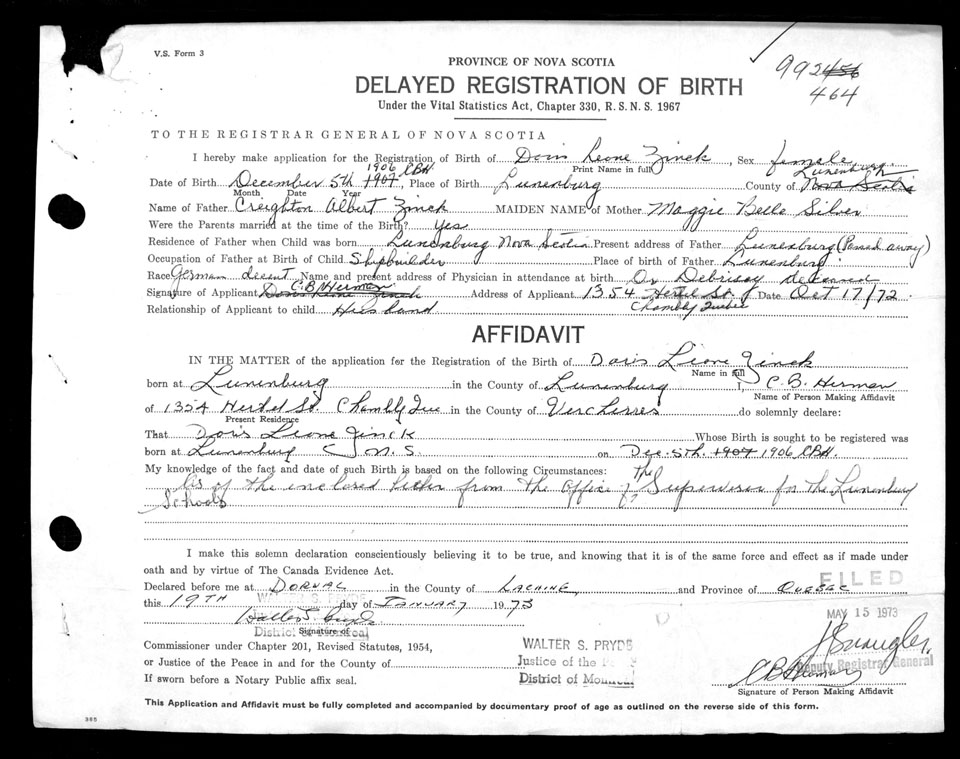 V.S. Form 3
PROVINCE OF NOVA SCOTIA
992456
464
DELAYED REGISTRATION OF BIRTH
Under the Vital Statistics Act, Chapter 330, R. S. N. S. 1967
TO THE REGISTRAR GENERAL OF NOVA SCOTIA
I hereby make application for the Registration of Birth of Doris Leone Zinck, Sex female
Print Name in full
1906 CBH
Lunenburg
Date of Birth December 5th 1907, Place of Birth Lunenburg County of Nova Scotia
Month Date Year
Name of Father Creighton Albert Zinck MAIDEN NAME of Mother Maggie Belle Silver
Were the Parents married at the time of the Birth? Yes
Residence of Father when Child was born Lunenburg Nova Scotia Present address of Father Lunenburg (Passed away)
Occupation of Father at Birth of Child Shipbuilder Place of birth of Father Lunenburg
Race German decent Name and present address of Physician in attendance at birth Dr Debrisay deceased
C.B. Herman
Signature of Applicant Doris Leone Zinck Address of Applicant 1354 Hertel St Date Oct 17/72
Chambly Quebec
Relationship of Applicant to child Husband
AFFIDAVIT
IN THE MATTER of the application for the Registration of the Birth of Doris Leone Zinck
Name in full
born at Lunenburg in the County of Lunenburg I, C. B. Herman
Name of Person Making Affidavit
of 1354 Hertel St. Chambly Que in the County of Vercherres do solemnly declare:
Present Residence
That Doris Leone Zinck Whose Birth is sought to be registered was
born at Lunenburg N. S. on Dec. 5th. 1907 1906 CBH.
My knowledge of the fact and date of such Birth is based on the following Circumstances:
As of the enclosed letter from the Office of the Supervisor for the Lunenburg
Schools
I make this solemn declaration conscientiously believing it to be true, and knowing that it is of the same force and effect as if made under
oath and by virtue of The Canada Evidence Act.
Declared before me at DORVAL in the County of LACHINE and Province of QUEBEC
FILED
this 19TH day of JANUARY 1973
WALTER S. PRYDE
MAY 15 1973
Walter S. Pryde
District of Montreal
Signature of
Commissioner under Chapter 201, Revised Statutes, 1954,
or Justice of the Peace in and for the County of
If sworn before a Notary Public affix seal.
WALTER S. PRYDE
Justice of the Peace
District of Montreal
Deputy Registrar General
C B Herman
Signature of Person Making Affidavit
This Application and Affidavit must be fully completed and accompanied by documentary proof of age as outlined on the reverse side of this form.
385